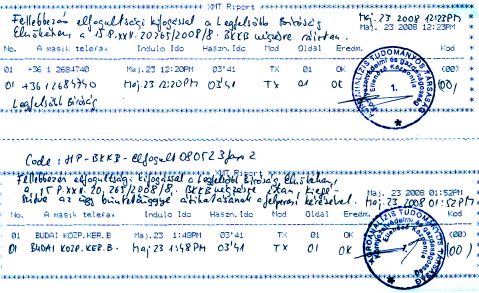 XMT Riport
Fellebbezés elfogultsági kifogással a Legfelsőbb Bíróság Maj. 23 2008 12:23PM
Elnökéhez, a 15 P.XXII. 20265/2008/8. BKKB végzésre Maj. 23 2008 12:23PM
No. A masik telefax Indulo Ido Haszn.Ido Mod Oldal Eredm. Kod
01 +36 1 2684740 Maj.23 12:20PM 03'41 TX 01 OK (00)
01 +36 1 2684740 Maj.23 12:20PM 03'41 TX 01 OK (00)
Legfelsőbb Bíróság
PÁRANALÍZIS TUDOMÁNYOS TÁRSASÁG
1.
Code: HP-BKKB-elfogult080523fax2
XMT Riport
Fellebbezés elfogultsági kifogással a Legfelsőbb Bíróság Elnökéhez,
a 15 P.XXII. 20.265/2008/8. BKKB végzésre Maj. 23 2008 01:52PM
az ügy áthatásának kérésével. Maj. 23 2008 01:52PM
No. A masik telefax Indulo Ido Haszn.Ido Mod Oldal Eredm. Kod
01 BUDAI KOZP.KER.B Maj.23 1:48PM 03'41 TX 01 OK (00)
01 BUDAI KOZP. KER. B. Maj. 23 1:48PM 03'41 TX 01 OK (00)
TUDOMÁNYOS TÁRSASÁG